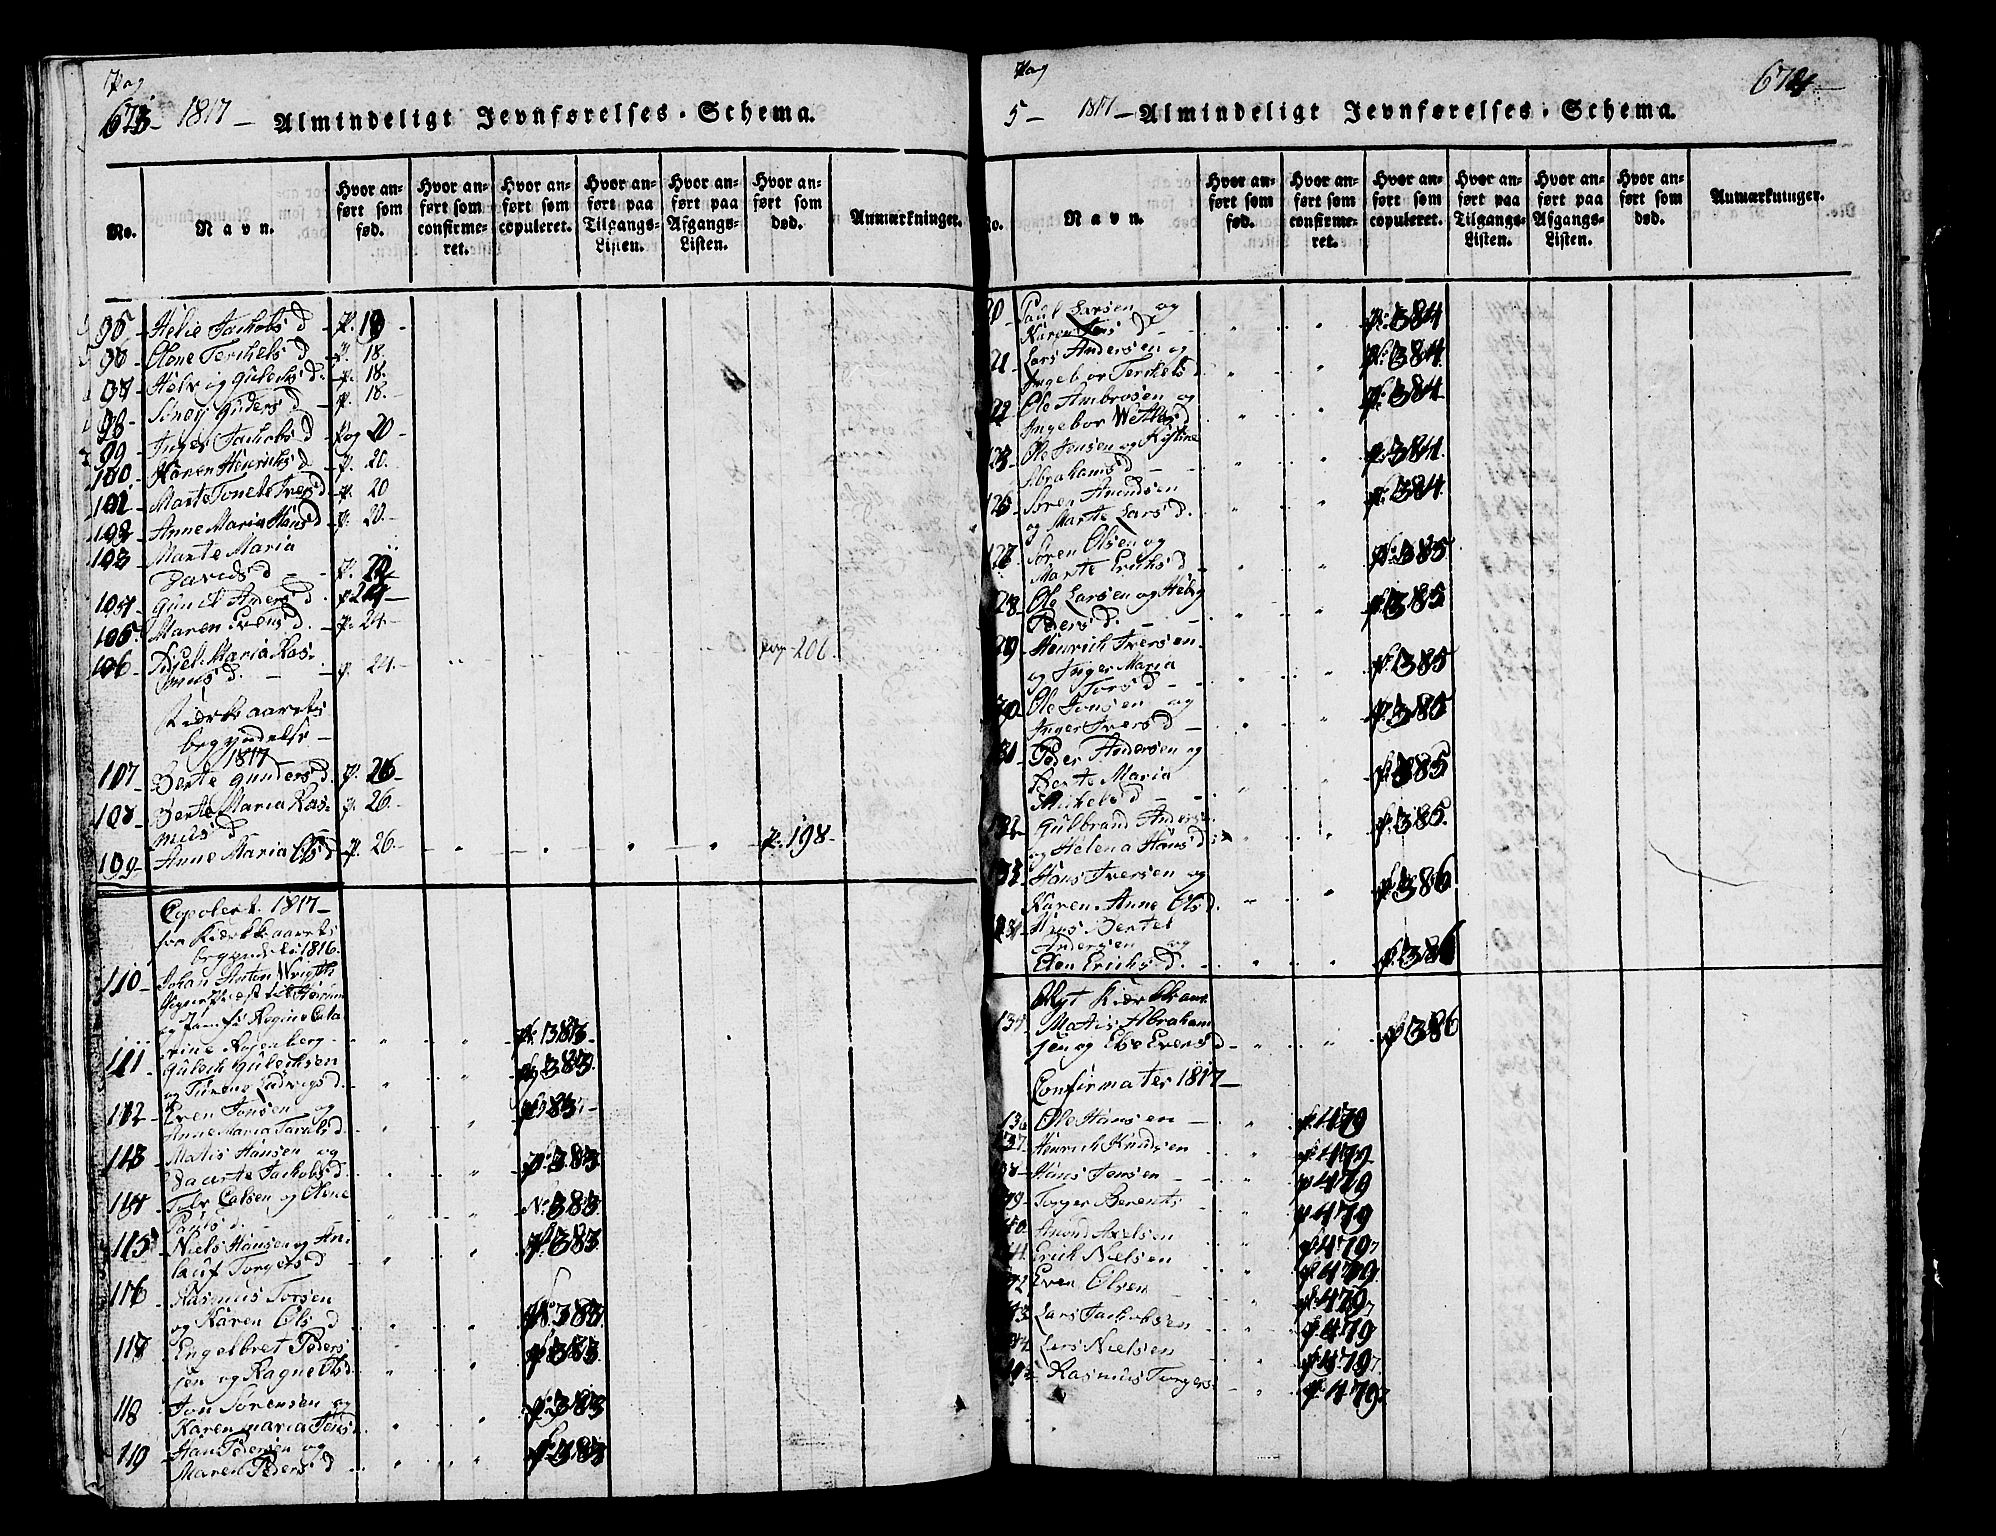 Pag
673 - 1817 - Almindeligt Jevnførelses-Schema.
No.
Navn.
Hvor anført som fød.
Hvor anført som confirmeret.
Hvor anført som copuleret.
Hvor anført paa Tilgangs-Listen.
Hvor anført paa Afgangs-Listen.
Hvor anført som død.
Anmærkninger.
95 - Helie Jachobs d - P. 19 -
96 Olene Terchels d - P. 18.
97 Helvig Gulichs d. - P. 18.
98 - Siney Gunders d - P. 18. -
99 - Inger Jachobs d - Pag 20 -
100 - Karen Henrichs d - P. 20.
101 - Marte Tonete Ivers d - P. 20
102 - Anne Maria Hans d - P. 20. -
103 - Marte Maria
Davids d - - P. 22
104 - Gunil Anders d. - P 24 -
105. Maren Svens d. - P. 24 -
106 - Maria Ras-
mus d. - - P. 24. - pag - 206.
Kirkeaarets
begyndelse -
1817
107 - Berte Gunders d. - P. 26 -
108 - Berte Maria Ras- P. 26. -
mus d
109 - Anne Maria Ols d - P. 26. - P. 198 -
Copoleret. 1817 -
for Kirkeaarets
begyndelse 1816.
110 - Johan Anton Wrigth
og Jomfrue Regine Cata
rine Rosenberg - P. 383 -
111 - Gulich Gulichsen
og Turene Ludvigs d. - P 383.
112 - Even Jonsen og
Anne Maria Jacobs d. - P 383 -
113 - Matis Hansen og
Jachobs d. - P. 383
114 Colsen og Olene
Pauls d. - No 383
115 - Niels Hansen og An-
lauf Torgers d - P. 383.
116 Rasmus Torsen
og Karen Ols d - P. 383.
117 Engelbret Peders
sen og Ragne Ols d - P 383.
118 Jon Sørensen og
Karen maria Jens - P. 383
119 - Hans Pedersen og
Maren Peders d - P. 383
Pag
5 - 1817 - Almindeligt Jevnførelses-Schema. 674 -
No.
Navn.
Hvor anført som fød.
Hvor anført som confirmeret.
Hvor anført som copuleret.
Hvor anført paa Tilgangs-Listen.
Hvor anført paa Afgangs-Listen.
Hvor anført som død.
Anmærkninger.
20 - Paul Larsen og
Karen Jens d - - P. 384
21 - Lars Andersen og
Ingebor Terchels d. P. 384.
122 - Ole Ambrosen og
Ingebor d P. 384
123 - Ole Jensen og Kistine
Abrahams d - - P. 384.
126 - Søren Amundsen
og Marte Lars d. P. 384.
127 - Søren Olsen og
Marte Erichs d - P. 385
28 - Ole Larsen og
Peders d. - - P. 385
29 - Henrich Iversen.
og Inger Maria
Tors d - - P. 385
30 - Ole Jonsen og
Inger Ivers d - P. 385
31 - Peder Andersen og
Berte Maria
Michels d - - P. 385
132 Gulbrand Anders.
og Helena Hans d: P. 385.
33 - Hans Iversen og
Karen Anne Ols d. P. 386
34 - Bertel
Andersen og
Elen Erichs d. - P. 386
Nyt Kirkkaar
135 - Matis Abraham
sen og Ebe Evens d - P 386
Confirmater 1817 -
136 Ole Hansen - P. 479
137 - Henrich Knudsen P. 479
38 - Hans Jensen - - P 479
39 - Torger Berents P 479
40 - Amond Axelsen P 479,
41 Erich Nielsen P 479.
42 Even Olsen - P 479,
43 Lars Jachobsen P 479
44 Lars Nielsen P 479,
Rasmus Torgers. P. 479.